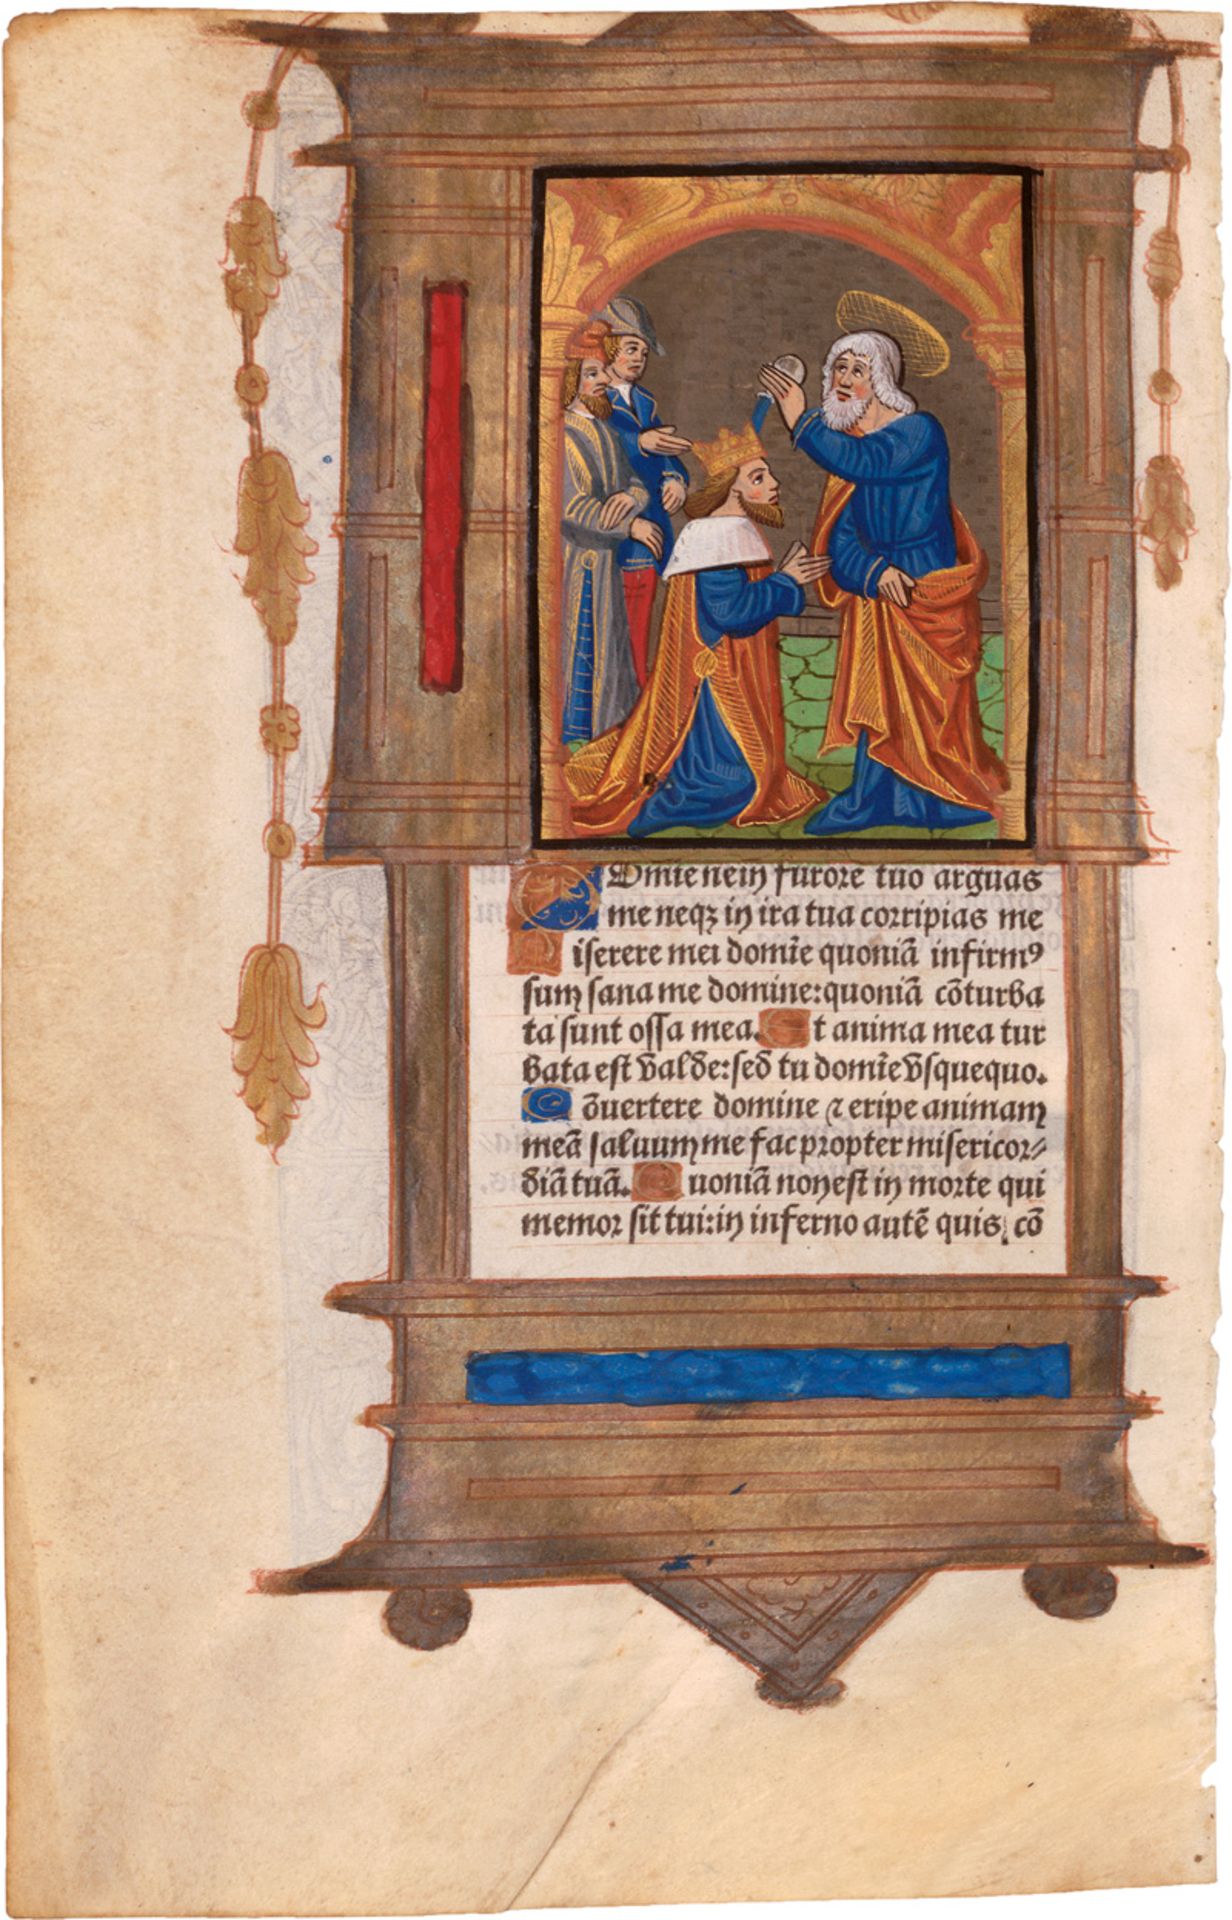 Domīe ne in furore tuo arguas
me neqꝫ in ira tua corripias me
Miserere mei domīe quoniā infirmꝰ
sum sana me domine: quoniā cōturba
ta sunt ossa mea. Et anima mea tur
bata est valde: sed tu domīe vsquequo.
Cōuertere domine ⁊ eripe animam
meā saluum me fac propter misericor⸗
diā tuā. Quoniā non est in morte qui
memor sit tui: in inferno autē quis cō